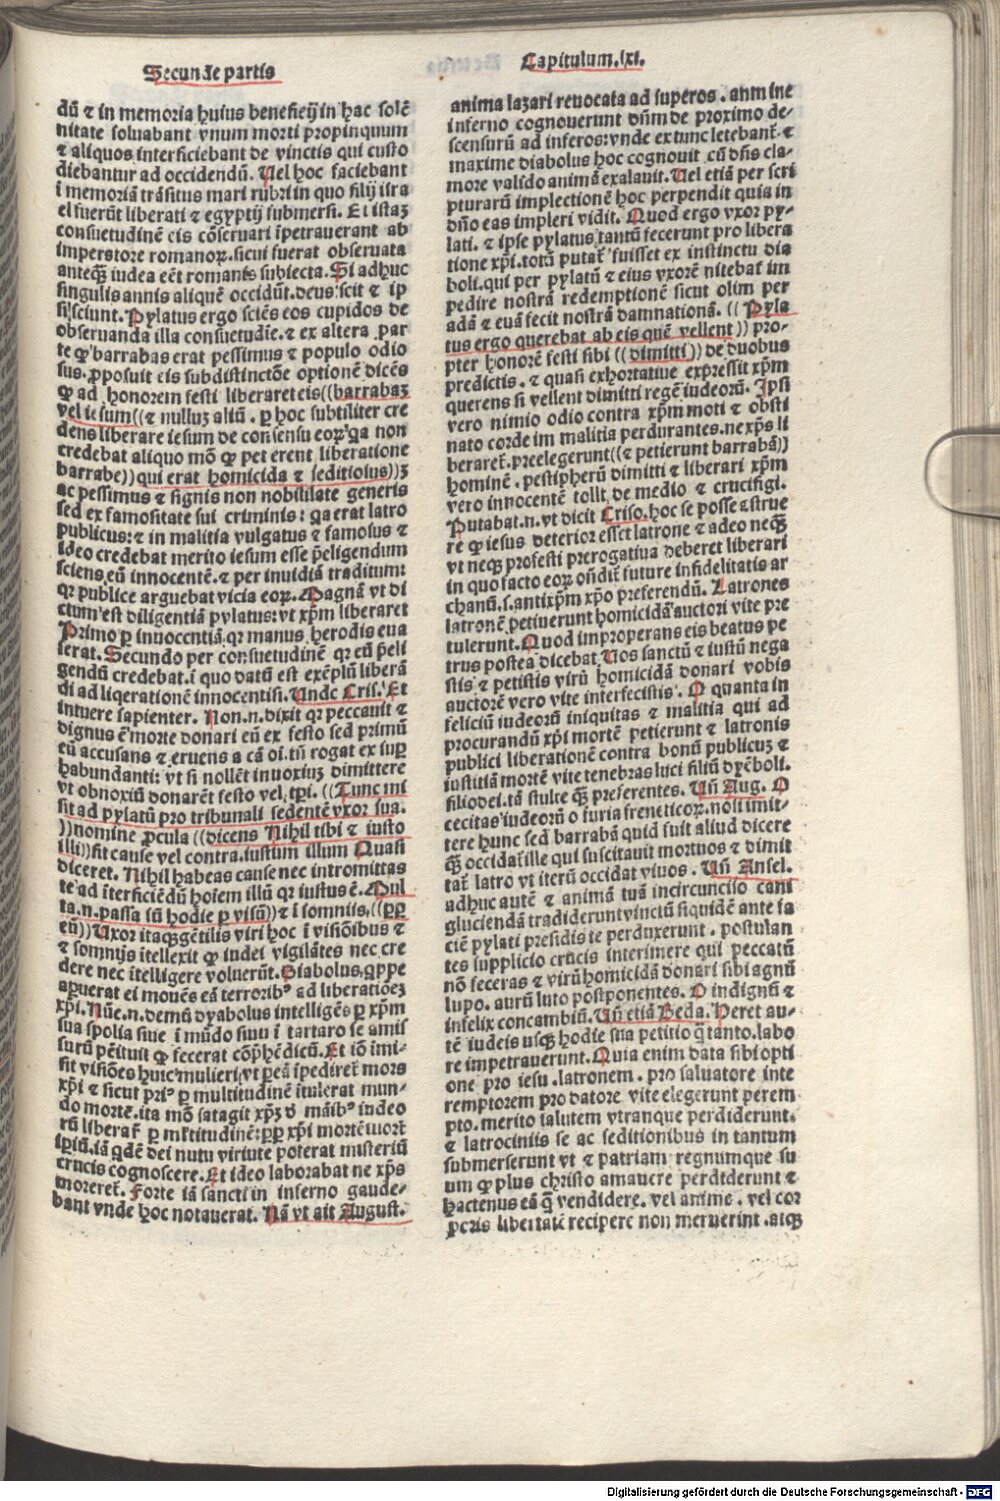 Secunde partis
Capitulum .lxi.
dū ⁊ in memoria huius beneficij in hac solē
nitate soluabant vnum morti propinquum
⁊ aliquos interficiebant de vinctis qui custo
diebantur ad occidendū. Uel hoc faciebant
ī memoriā trāsitus mari rubri in quo filij isra
el fuerūt liberati ⁊ egyptij submersi. Et istaꝫ
consuetudinē eis cōseruari īpetrauerant ab
imperatore romanoꝝ. sicui fuerat obseruata
anteqꝫ iudea eēt romanis subiecta. Si adhuc
singulis annis aliquē occidūt. deus scit ⁊ ip
si sciunt. Pylatus ergo sciēs eos cupidos de
obseruanda illa consuetudīe. ⁊ ex altera par
te qꝫ barrabas erat pessimus ⁊ populo odio
sus. ꝓposuit eis subdistinctōe optionē dicēs
ꝙ ad honorem festi liberaret eis((barrabaꝫ
vel iesum((⁊ nulluꝫ aliū. ꝑ hoc subtiliter cre
dens liberare iesum de consensu eoꝝ qa non
credebat aliquo mō ꝙ peterent liberatione
barrabe))qui erat homicida ⁊ seditiosus))ꝫ
ac pessimus ⁊ signis non nobilitate generis
sed ex famositate sui criminis: qa erat latro
publicus: ⁊ in malitia vulgatus ⁊ famosus ⁊
ideo credebat merito iesum esse p̄eligendum
sciens eū innocentē. ⁊ per inuidiā traditum:
qꝛ publice arguebat vicia eoꝝ. Magnā vt di
ctum est diligentiā pylatus: vt xp̄m liberaret
Primo ꝑ innocentiā. qꝛ manus herodis eua
serat. Secundo per consuetudinē qꝛ eū p̄eli
gendū credebat. ī quo datū est exēplū liberā
di ad liqerationē innocentisi. Unde Cris. Et
intuere sapienter. Non.n.dixit qꝛ peccauit ⁊
dignus ē morte donari eū ex festo sed primū
eū accusans ⁊ eruens a cā oī. tū rogat ex suꝑ
habundanti: vt si nollēt inuoxiuꝫ dimittere
vt obnoxiū donarēt festo vel tꝑi. ((Tunc mi
sit ad pylatū pro tribunali sedentē vxor sua.
))nomine ꝓcula ((dicens Nihil tibi ⁊ iusto
illi))sit cause vel contra. iustum illum Quasi
diceret. Nihil habeas cause nec intromittas
te ad īterficiēdū hoīem illū qꝛ iustus ē. Mul
ta.n.passa sū hodie ꝑ visū))⁊ ī somniis. ((ꝓp
eū))Uxor itaqꝫ gētilis viri hoc ī visiōibus ⁊
⁊ somnijs ītellexit ꝙ iudei vigilātes nec cre
dere nec ītelligere voluerūt. Diabolus. qꝛ ꝑpe
apuerat ei mouēs eā terrorib⁹ ad liberatiōeꝫ
xp̄i. Nūc.n.demū dyabolus intelligēs ꝑ xp̄m
sua spolia siue ī mūdo suu ī tartaro se amis
surū pēituit ꝙ fecerat cōp̄hēdicū. Et iō īmi-
sit visiōes huic mulieri vt ꝑ eā īpediret̄ mors
xp̄i ⁊ sicut pri⁹ ꝑ multitudinē ītulerat mun-
do mortē. ita mō satagit xp̄ꝫ ꝺ māib⁹ iudeo
rū liberar̄ ꝑ mr̄titudinē: ꝓp xp̄i mortē mort̄
ip̄iū. iā qdē dei nutu virtute poterat misteriū
crucis cognoscere. Et ideo laborabat ne xp̄s
moreret̄. Forte iā sancti in inferno gaude-
bant vnde hoc notauerat. Nā vt ait August.
anima lazari reuocata ad superos. animine
inferno cognouerunt dn̄m de proximo de-
scensurū ad inferos: vnde ex tunc letebant̄ ⁊
maxime diabolus hoc cognouit cū dn̄s cla-
more valido animā exalauit. Uel etiā per scri
pturarū implectionē hoc perpendit quia in
dn̄o eas impleri vidit. Quod ergo vxor py-
lati. ⁊ ipse pylatus tantū fecerunt pro libera
tione xp̄i. totū putat̄ fuisset ex instinctu dia
boli. qui per pylatū ⁊ eius vxorē nitebat̄ im
pedire nostrā redemptionē sicut olim per
adā ⁊ euā fecit nostrā damnationā. (( Pyla
tus ergo querebat ab eis quē vellent)) pro-
pter honorē festi sibi ((dimitti)) de duobus
predictis. ⁊ quasi exhortatiue expressit xp̄m
querens si vellent dimitti regē iudeorū. Ipsi
vero nimio odio contra xp̄m moti ⁊ obsti
nato corde im malitia perdurantes. ne xp̄s li
beraret̄. preelegerunt((⁊ petierunt barrabā))
hominē. pestipherū dimitti ⁊ liberari xp̄m
vero innocentē tolli de medio ⁊ crucifigi.
Putabat.n.vt dicit Criso. hoc se posse astrue
re ꝙ iesus deterior esset latrone ⁊ adeo neqꝫ
vt neqꝫ ꝓfesti prerogatiua deberet liberari
in quo facto eoꝝ ondit̄ future infidelitatis ar
chanū. s. antixp̄m xp̄o preferendū. Latrones
latronē petiuerunt homicidā auctori vite pre
tulerunt. Quod improperans eis beatus pe
trus postea dicebat. Uos sanctū ⁊ iustū nega
stis ⁊ petistis virū homicidā donari vobis
auctorē vero vite interfecistis. O quanta in
feliciū iudeorū iniquitas ⁊ malitia qui ad
procurandū xp̄i mortē petierunt ⁊ latronis
publici liberationē contra bonū publicuꝫ ⁊
iustitiā mortē vite tenebras luci filiū dyēboli.
filio dei. tā stulte qꝫ preferentes. Un̄ Aug. O
cecitas iudeorū o furia freneticoꝝ. nosi imit-
tere hunc sed barrabā quid fuit aliud dicere
qꝫ occidat̄ ille qui suscitauit mortuos ⁊ dimit
tat̄ latro vt iterū occidat viuos. Un̄ Ansel.
adhuc autē ⁊ animā tuā incircunciso cani
gluciendā tradiderunt vinctū siquidē ante fa
ciē pylati presidis te perduxerunt. postulan
tes supplicio crucis interimere qui peccatū
nō feceras ⁊ virū homicidā donari sibi agnū
lupo. aurū luto postponentes. O indignū ⁊
infelix concambiū. Un̄ etiā Beda. Peret au-
tē iudeis usqꝫ hodie sua petitio q̄ tanto. labo
re impetrauerunt. Quia enim data sibi opti
one pro iesu. latronem. pro saluatore inte
remptorem pro datore vite elegerunt perem
pto. merito salutem vtranque perdiderunt.
⁊ latrociniis se ac seditionibus in tantum
submerserunt vt ⁊ patriam regnumque su
um ꝙ plus christo amauere perdiderunt ⁊
hactenus eā q̄ vendidere. vel anime. vel cor
ꝑoris libertatē recipere non meruerint. atqꝫ
Digitalisierung gefördert durch die Deutsche Forschungsgemeinschaft - DFG